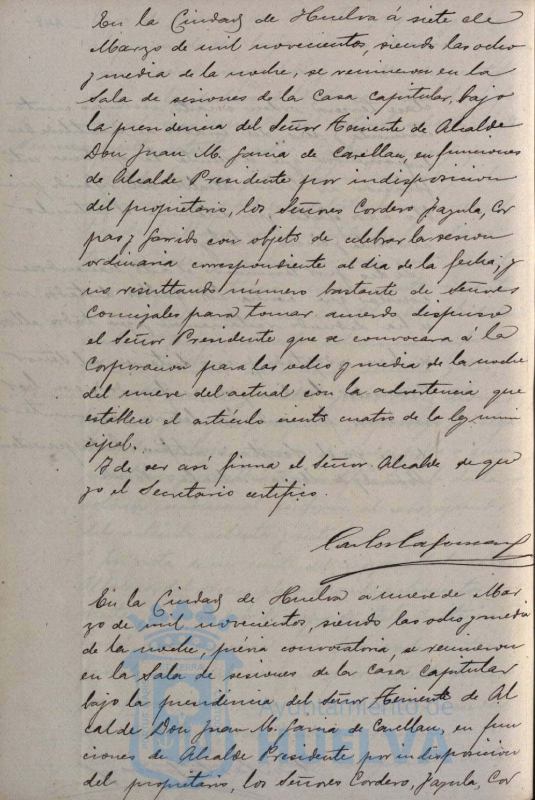 En la Ciudad de Huelva á siete de
Marzo de mil novecientos, siendo las ocho
y media de la noche, se reunieron en la
Sala de sesiones de la Casa Capitular, bajo
la presidencia del Señor Teniente de Alcalde
Don Juan M. Garcia de Casellau, en funciones
de Alcalde Presidente por indisposicion
del propietario, los Señores Cordero, Jazula, Cor
pas y Garrido con objeto de celebrar la sesion
ordinaria correspondiente al dia de la fecha; y
no resultando número bastante de Señores
Concejales para tomar acuerdo dispuso
el Señor Presidente que se convocara á la
Corporacion para las ocho y media de la noche
del nueve del actual con la advertencia que
establece el artículo ciento cuatro de la ley muni
cipal.
Y de ser así firma el Señor Alcalde de que
yo el Secretario certifico.
Carlos
En la Ciudad de Huelva á nueve de Mar
zo de mil novecientos, siendo las ocho y media
de la noche, prévia convocatoria, se reunieron
en la Sala de sesiones de la casa Capitular
bajo la presidencia del Señor Teniente de Al
calde Don Juan M. Garcia de Casellau, en fun
ciones de Alcalde Presidente por indisposicion
del propietario, los Señores Cordero, Jazula, Cor
Ayuntamiento de
HUELVA